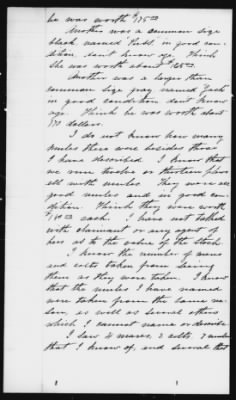 he was worth $175.00
Another was a common size
black named Kitt, in good con-
dition, don't know age. Think
she was worth about 165.00
Another was a larger than
common size gray named Jack
in good condition don't know
age. Think he was worth about
170 dollars.
I do not know how many
mules there were besides those
I have described. I know that
we run twelve or thirteen plows
all with mules. They were all
good mules and in good con-
dition. I think they were worth
each. I have not talked
with claimant or any agent of
hers as to the value of the stock.
I know the number of mares
and colts taken from seeing
them as they were taken. I know
that the mules I have named
were taken from the same rea-
son, as well as several others
which I cannot name or describe.
I saw 4 mares, 2 colts, 7 mules
that I know of, and several that